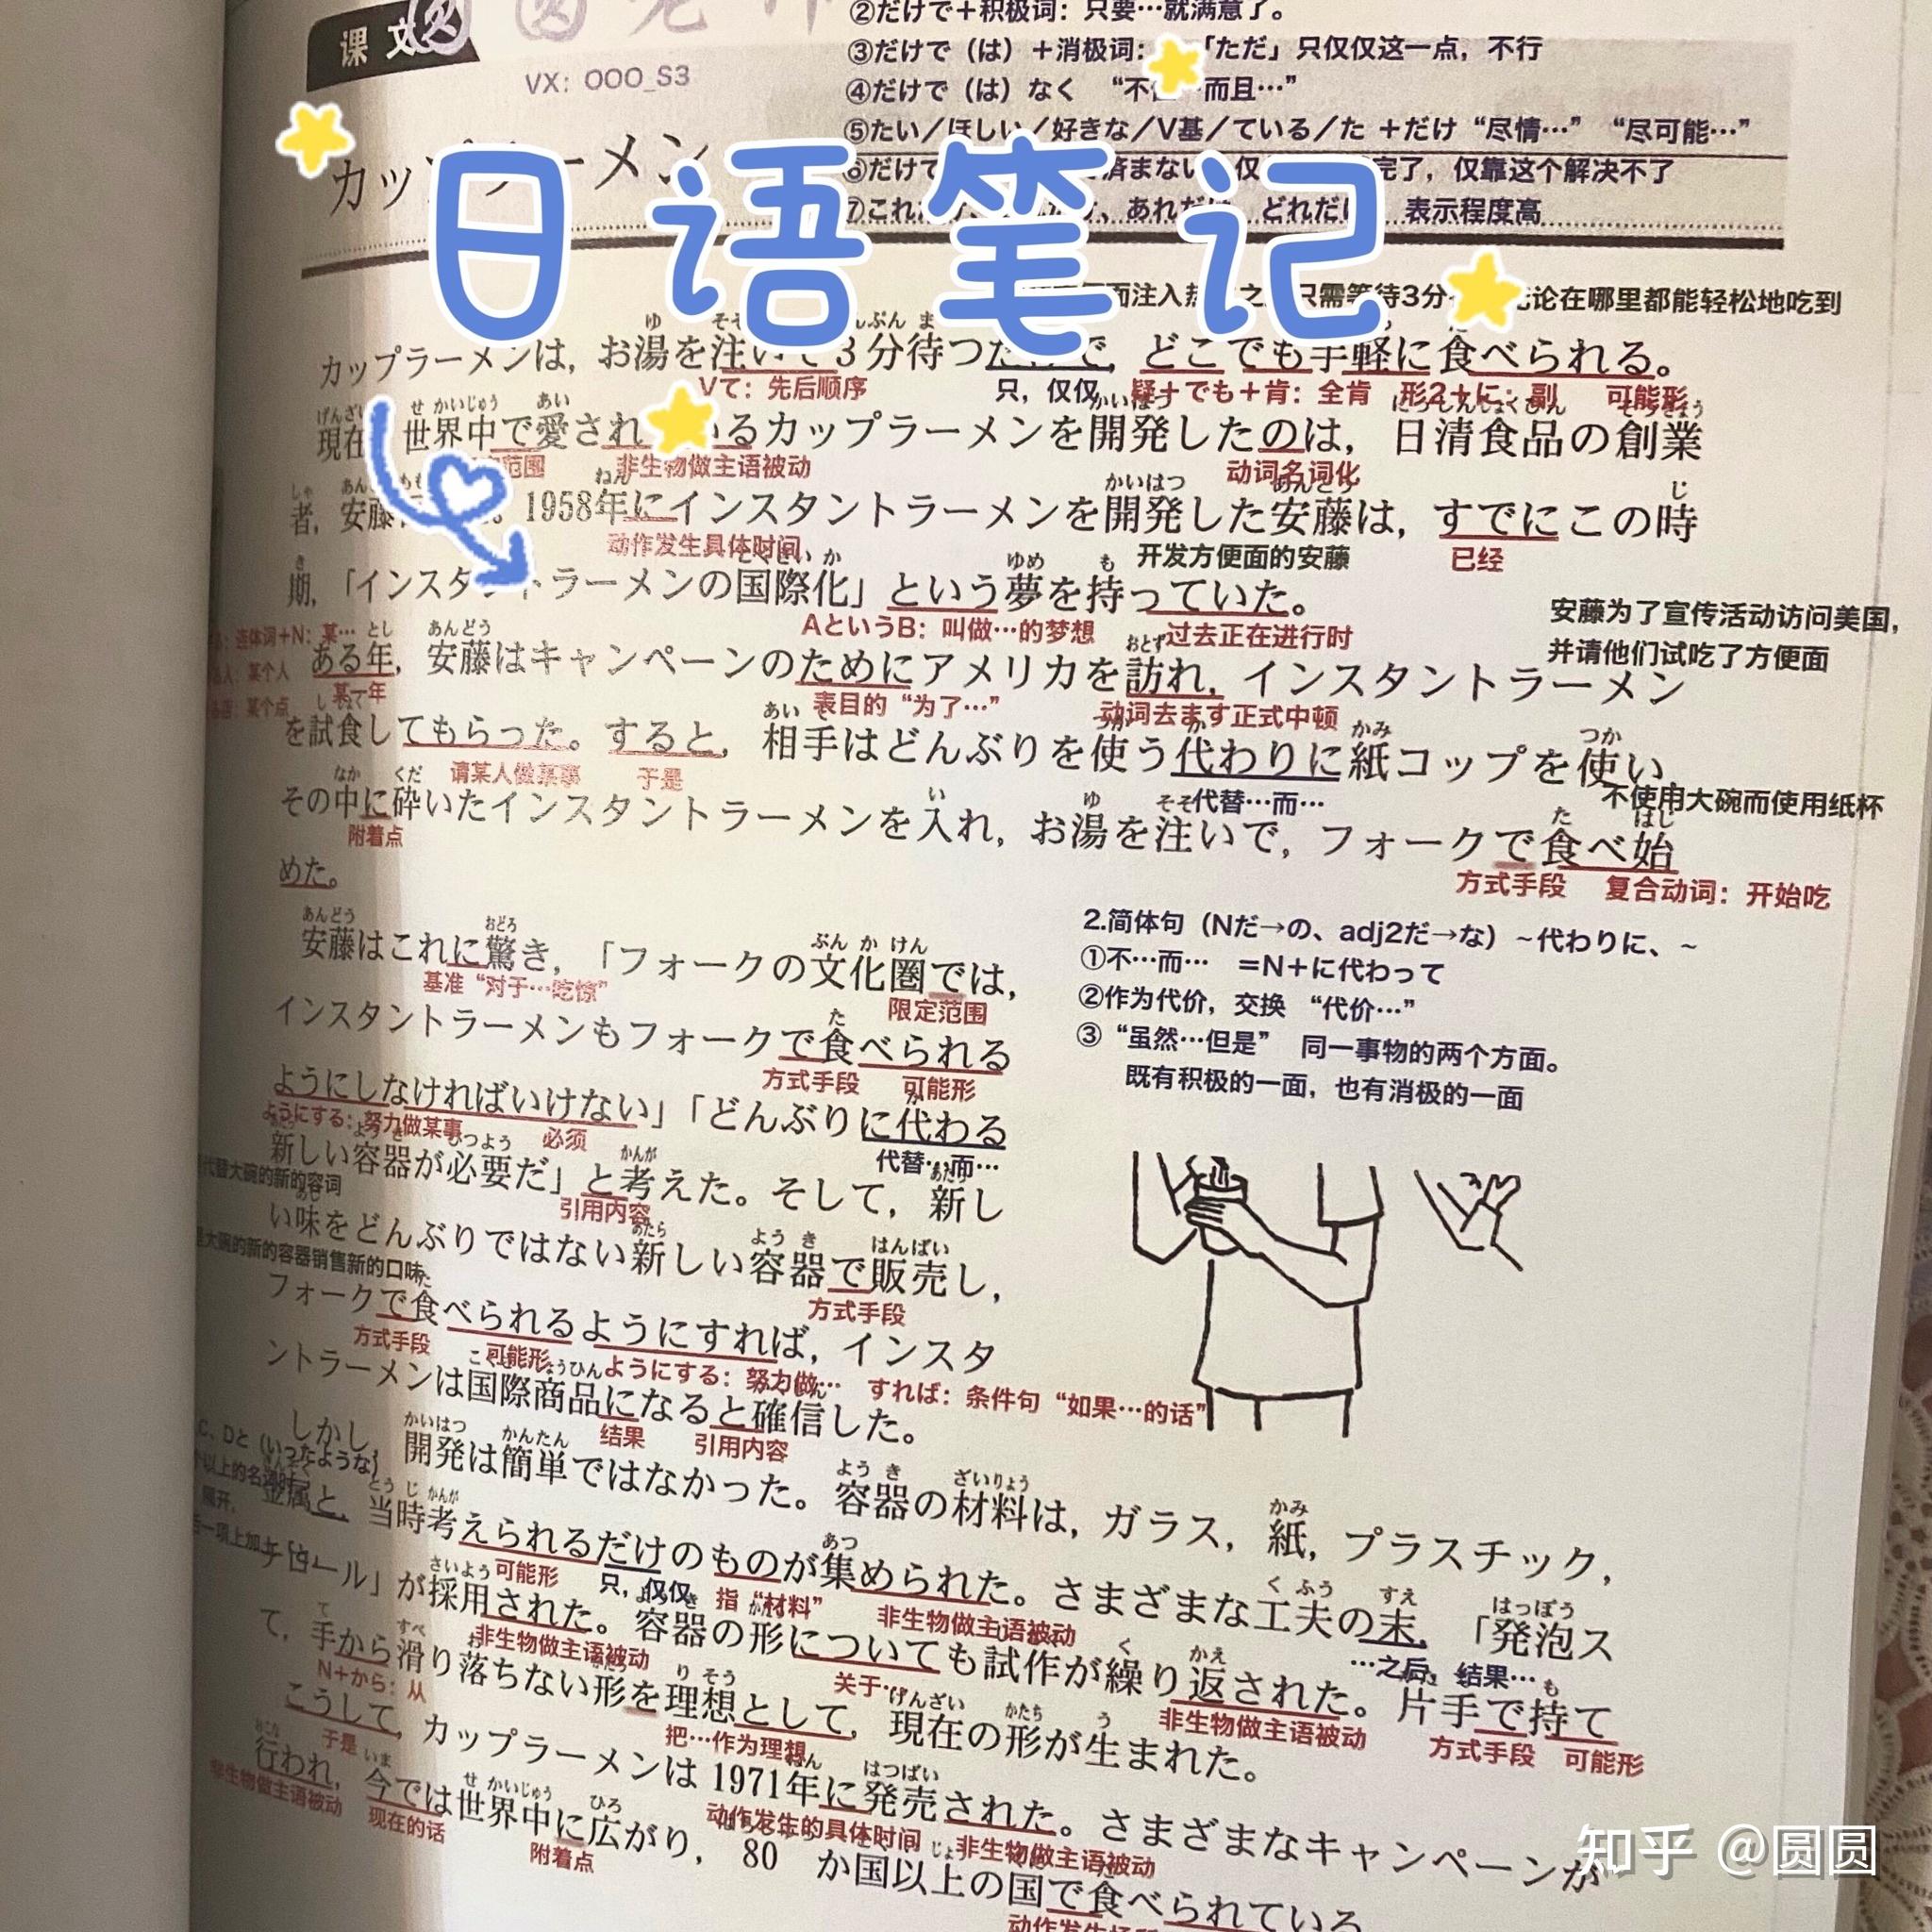 课文
VX: OOO_S3
②だけで＋积极词：只要…就满意了。
③だけで（は）＋消极词： 「ただ」只仅仅这一点，不行
④だけで（は）なく “不 而且…”
⑤たい／ほしい／好きな／V基／ている／た ＋だけ “尽情…” “尽可能…”
⑥だけで 済まない 仅 完了，仅靠这个解决不了
⑦これ 、 、あれだけ、どれだけ 表示程度高
カップラーメン
日语笔记
面注入热 之 只需等待3分 无论在哪里都能轻松地吃到
カップラーメンは，お湯を注いで3分待つだけで，どこでも手軽に食べられる。
Vて：先后顺序 只，仅仅 疑＋でも＋肯：全肯 形2＋に：副 可能形
現在 世界中で愛されているカップラーメンを開発したのは，日清食品の創業
范围 非生物做主语被动 动词名词化
者，安藤 。1958年にインスタントラーメンを開発した安藤は，すでにこの時
动作发生具体时间 开发方便面的安藤 已经
期，「インスタントラーメンの国際化」という夢を持っていた。
AというB：叫做…的梦想 过去正在进行时
安藤为了宣传活动访问美国，
并请他们试吃了方便面
连体词＋N：某…
ある年，安藤はキャンペーンのためにアメリカを訪れ，インスタントラーメン
某个人 某一年 表目的“为了…” 动词去ます正式中顿
某个点
を試食してもらった。すると，相手はどんぶりを使う代わりに紙コップを使い
请某人做某事 于是 代替…而…
不使用大碗而使用纸杯
その中に砕いたインスタントラーメンを入れ，お湯を注いで，フォークで食べ始
附着点 方式手段 复合动词：开始吃
めた。
安藤はこれに驚き，「フォークの文化圏では，
基准“对于…吃惊” 限定范围
インスタントラーメンもフォークで食べられる
方式手段 可能形
ようにしなければいけない」「どんぶりに代わる
ようにする：努力做某事 必须 代替…而…
新しい容器が必要だ」と考えた。そして，新し
代替大碗的新的容词 引用内容
い味をどんぶりではない新しい容器で販売し，
大碗的新的容器销售新的口味 方式手段
フォークで食べられるようにすれば，インスタ
方式手段 可能形 ようにする：努力做… すれば：条件句“如果…的话”
ントラーメンは国際商品になると確信した。
结果 引用内容
2.简体句（Nだ→の、adj2だ→な）~代わりに、~
①不…而… ＝N＋に代わって
②作为代价，交换 “代价…”
③“虽然…但是” 同一事物的两个方面。
既有积极的一面，也有消极的一面
しかし，開発は簡単ではなかった。容器の材料は，ガラス，紙，プラスチック，
C、Dと（いったような）
以上的名词
金属と，当時考えられるだけのものが集められた。さまざまな工夫の末，「発泡ス
展开， 可能形 只，仅仅 指“材料” 非生物做主语被动 …之后，结果…
チロール」が採用された。容器の形についても試作が繰り返された。片手で持て
非生物做主语被动 关于… 非生物做主语被动 方式手段 可能形
て，手から滑り落ちない形を理想として，現在の形が生まれた。
N＋から：从 把…作为理想
こうして，カップラーメンは1971年に発売された。さまざまなキャンペーンが
于是 动作发生的具体时间 非生物做主语被动
行われ，今では世界中に広がり，80か国以上の国で食べられている
非生物做主语被动 现在的话 附着点
知乎 @圆圆